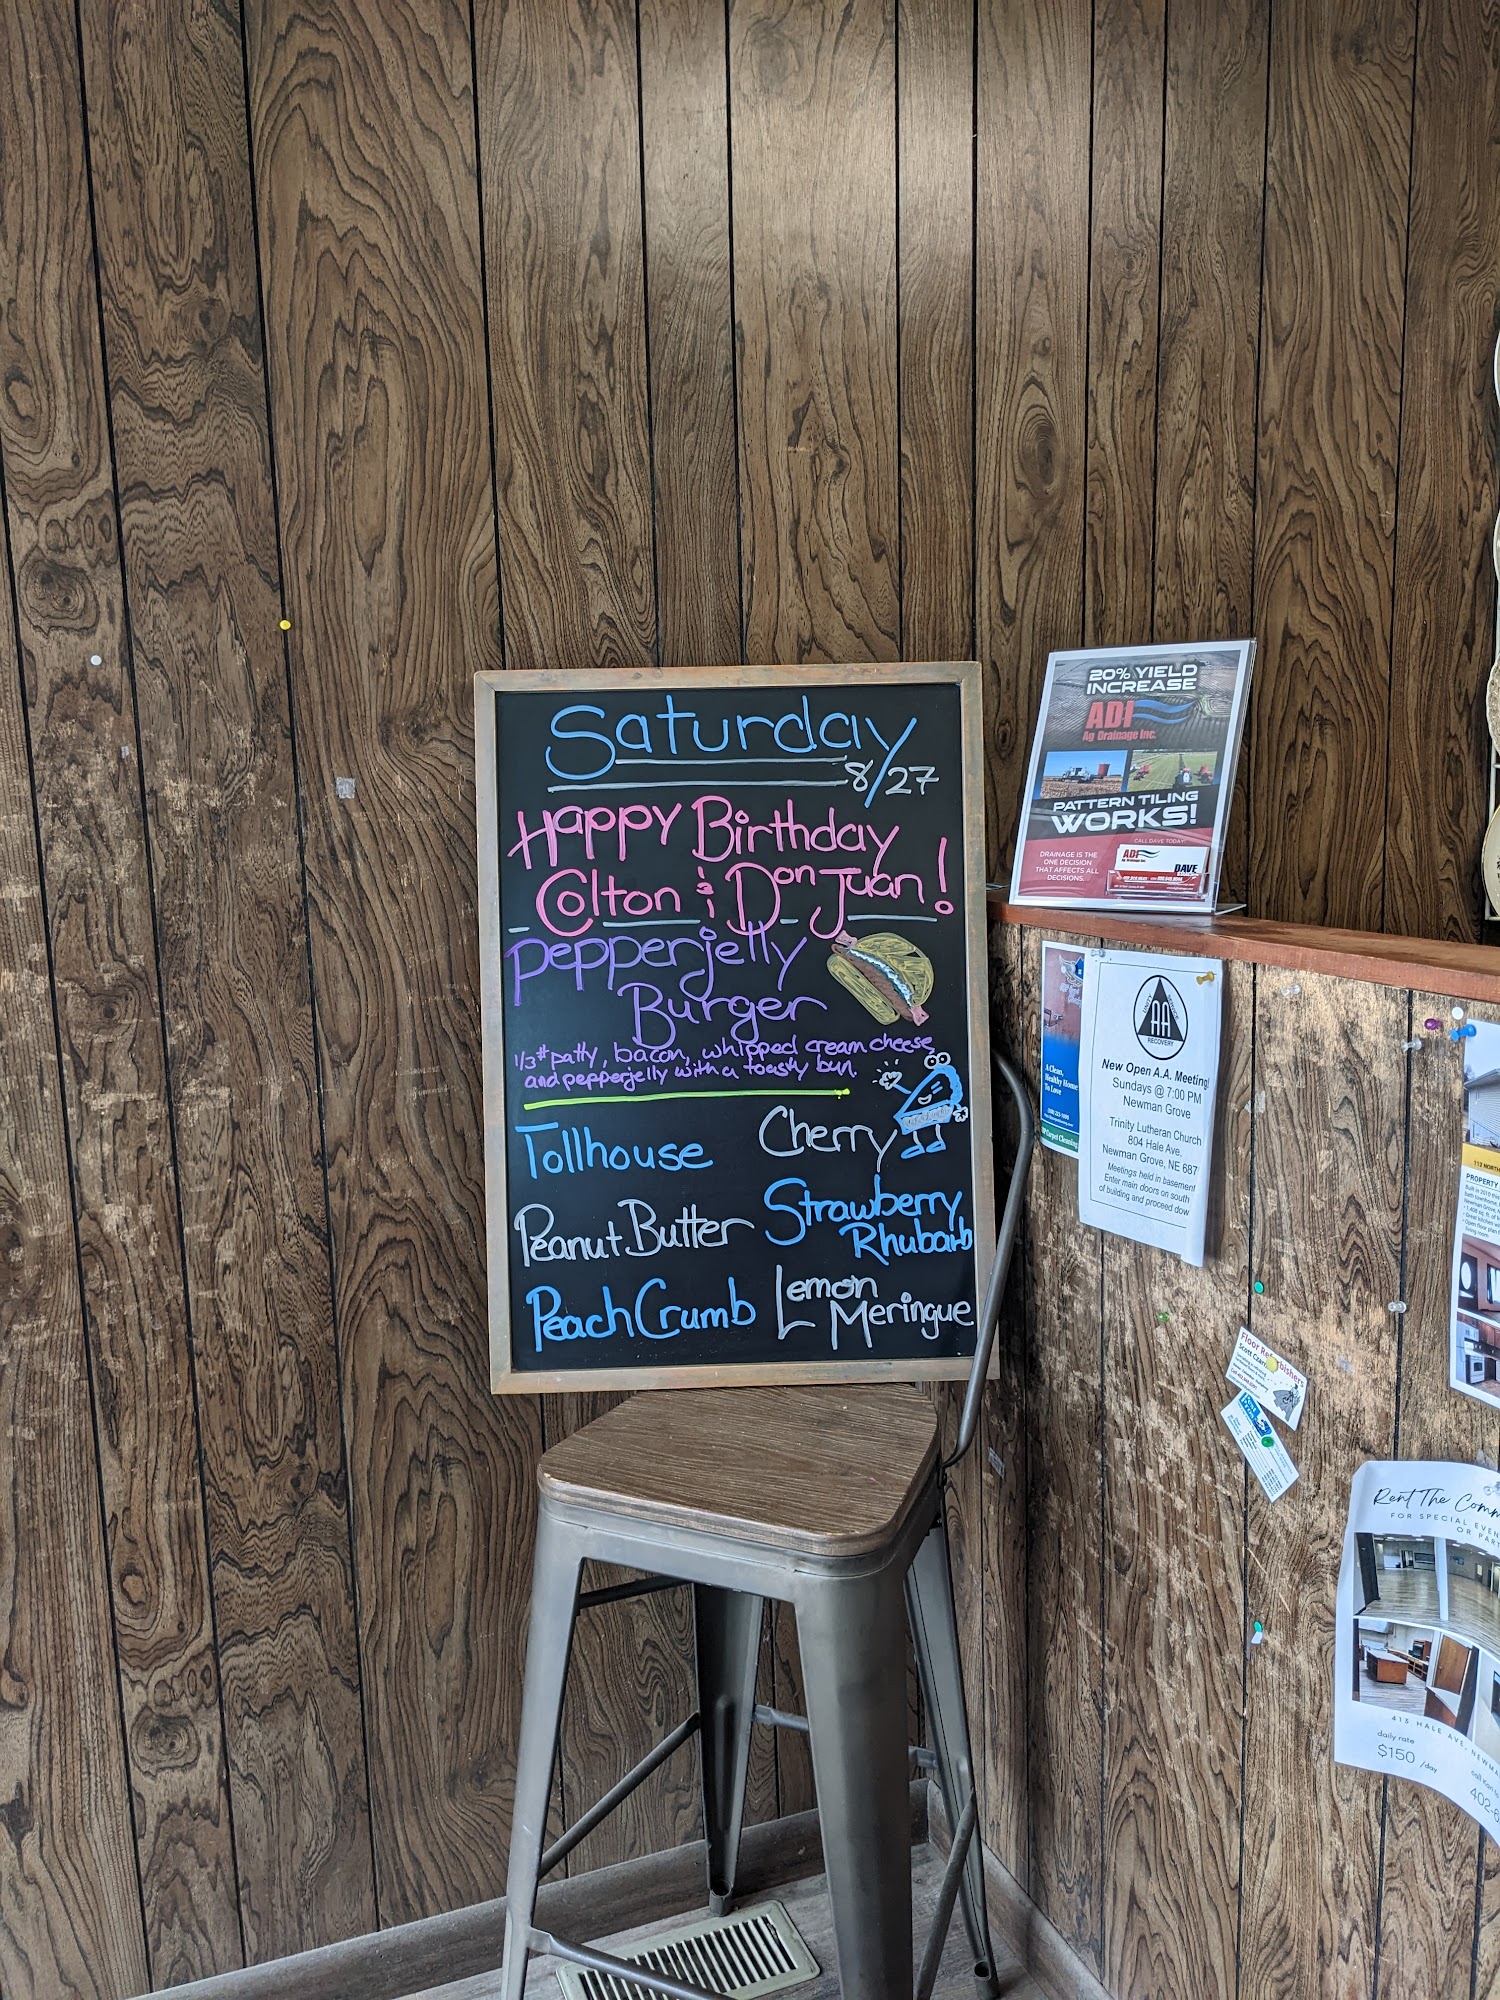 Saturday
8/27
Happy Birthday
Colton & Don Juan!
Pepperjelly
Burger
1/3# patty, bacon, whipped cream cheese,
and pepperjelly with a toasty bun.
Tollhouse
Cherry
Peanut Butter
Strawberry
Rhubarb
Peach Crumb
Lemon
Meringue
20% YIELD
INCREASE
ADI
Ag Drainage Inc.
PATTERN TILING
WORKS!
CALL DAVE TODAY!
DRAINAGE IS THE
ONE DECISION
THAT AFFECTS ALL
DECISIONS.
ADI
DAVE
A Clean,
Healthy Home
To Love
Carpet Cleaning
AA
RECOVERY
New Open A.A. Meeting!
Sundays @ 7:00 PM
Newman Grove
Trinity Lutheran Church
804 Hale Ave.
Newman Grove, NE 687
Meetings held in basement
Enter main doors on south
of building and proceed dow
PROPERTY
Floor Refurbishers
Rent The Comm
FOR SPECIAL EVEN
OR PART
413 HALE AVE, NEWMA
daily rate
$150 /day
402-6